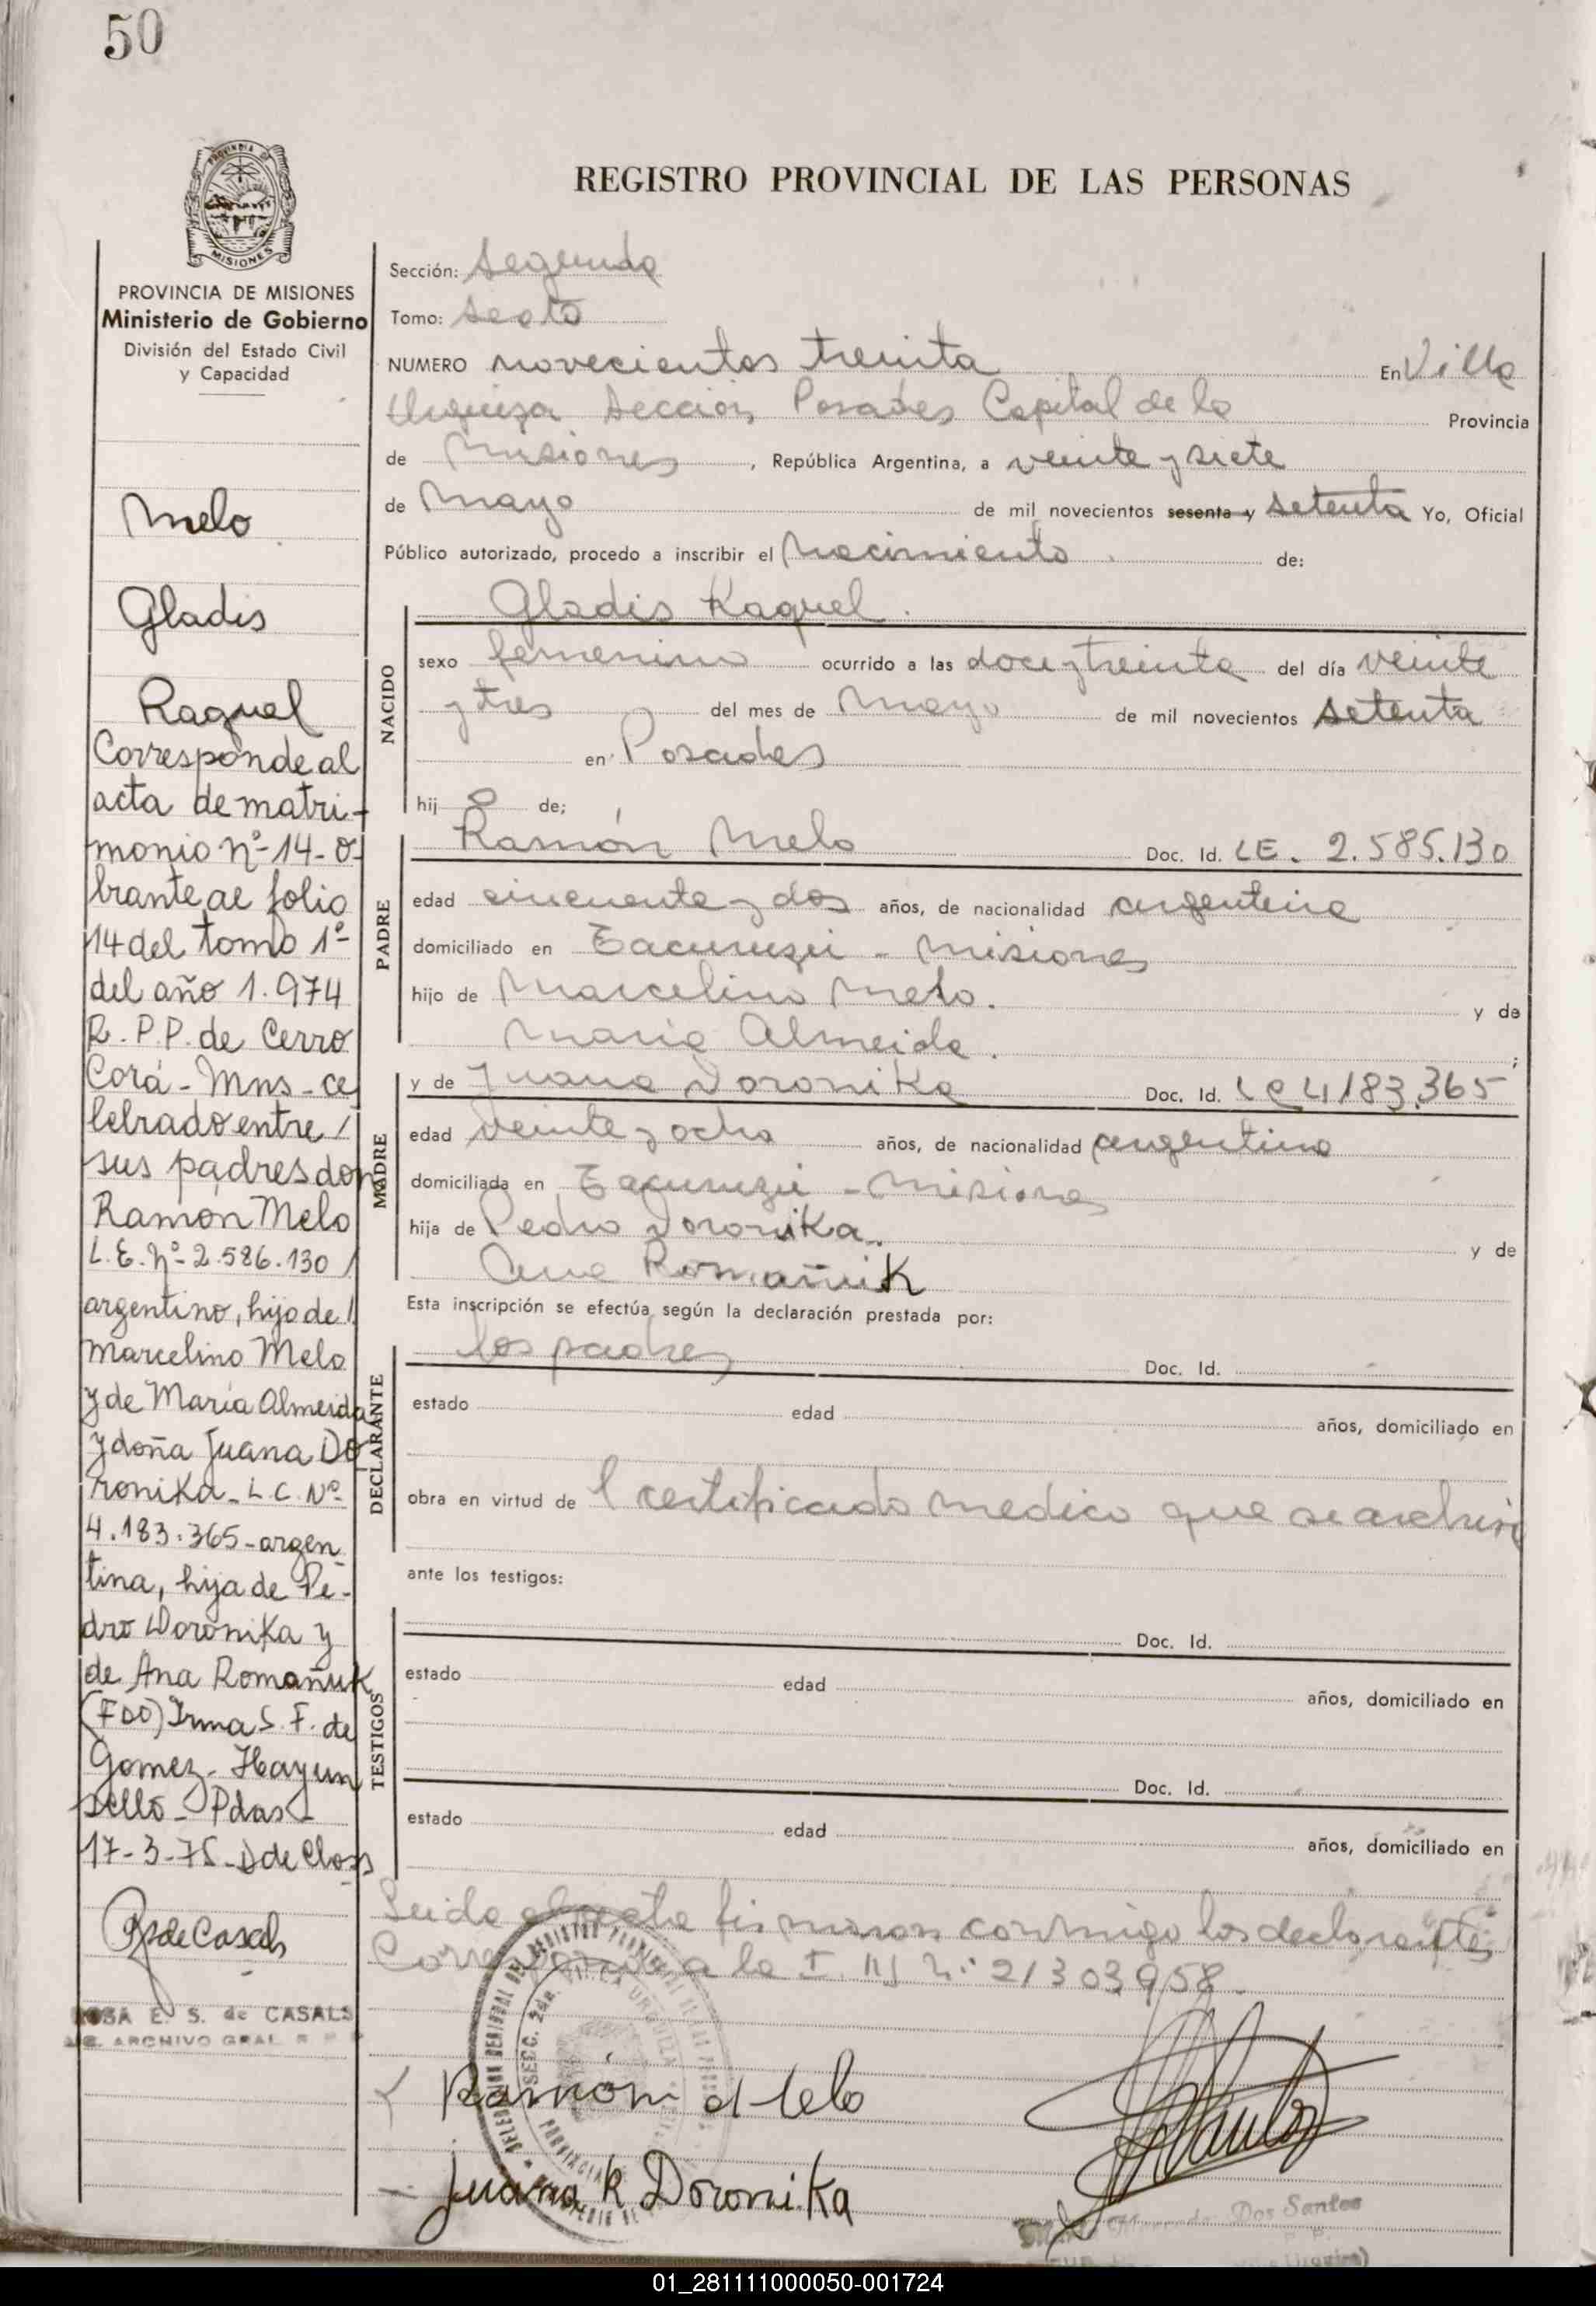 50
REGISTRO PROVINCIAL DE LAS PERSONAS
PROVINCIA DE MISIONES
Ministerio de Gobierno
División del Estado Civil
y Capacidad
Melo
Gladis
Raquel
Corresponde al
acta de matri-
monio nº-14-o-
brante al folio
14 del tomo 1º-
del año 1.974
R.P.P. de Cerro
Corá-Mns-ce
lebrado entre/
sus padres don
Ramon Melo
L.E.nº-2.586.130/
argentino, hijo de/
Marcelino Melo
y de María Almeida
y doña Juana Do
ronika-L.C.Nº
4.183.365-argen-
tina, hija de Pe-
dro Doronika y
de Ana Romañuk
(FDO) Irma S. F. de
Gomez-Hay un
sello-Pdas-
17-3-75-D de Closs
RsdeCasals
ROSA E. S. de CASALS
ARCHIVO GRAL. R P P
Sección: segunda
Tomo: sexto
NUMERO novecientos treinta En Villa
Urquiza Sección Posadas Capital de la Provincia
de Misiones, República Argentina, a veinte y siete
de Mayo de mil novecientos sesenta y setenta Yo, Oficial
Público autorizado, procedo a inscribir el Nacimiento de:
Gladis Raquel.
NACIDO
sexo femenino ocurrido a las doce y treinta del día veinte
y tres del mes de Mayo de mil novecientos setenta
en Posadas
hij a de;
PADRE
Ramón Melo Doc. Id. LE. 2.585.130
edad cincuenta y dos años, de nacionalidad argentina
domiciliado en Tacuruzú - Misiones
hijo de Marcelino Melo. y de
Maria Almeida.;
MADRE
y de Juana Doronika Doc. Id. LC 4183.365
edad veinte y ocho años, de nacionalidad argentina
domiciliada en Tacuruzú - Misiones
hija de Pedro Doronika. y de
Ana Romañuik
Esta inscripción se efectúa según la declaración prestada por:
DECLARANTE
los padres Doc. Id.
estado edad años, domiciliado en
obra en virtud de l certificado medico que se archiva
ante los testigos:
TESTIGOS
Doc. Id.
estado edad años, domiciliado en
Doc. Id.
estado edad años, domiciliado en
Leida el acta firmaron conmigo los declarantes
Corresponde a la I. M Nº 21303958
Ramón Melo
Juana R Doronika
Dos Santos
01_281111000050-001724